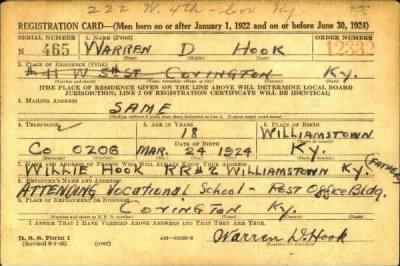 222 W. 4th - Cov Ky.
REGISTRATION CARD—(Men born on or after January 1, 1922 and on or before June 30, 1924)
SERIAL NUMBER 1. NAME (Print) ORDER NUMBER
N 465 WARREN D HOOK 12332
(First) (Middle) (Last)
2. PLACE OF RESIDENCE (Print)
W 5th ST COVINGTON Ky.
[THE PLACE OF RESIDENCE GIVEN ON THE LINE ABOVE WILL DETERMINE LOCAL BOARD
JURISDICTION; LINE 2 OF REGISTRATION CERTIFICATE WILL BE IDENTICAL]
3. MAILING ADDRESS
SAME
4. TELEPHONE 5. AGE IN YEARS 6. PLACE OF BIRTH
18 WILLIAMSTOWN
DATE OF BIRTH
CO 0206 MAR. 24 1924 KY.
7. NAME AND ADDRESS OF PERSON WHO WILL ALWAYS KNOW YOUR ADDRESS
WILLIE HOOK RR#2 WILLIAMSTOWN Ky. (FATHER)
8. EMPLOYER'S NAME AND ADDRESS
ATTENDING Vocational School - Post Office Bldg.
9. PLACE OF EMPLOYMENT OR BUSINESS
COVINGTON Ky.
I AFFIRM THAT I HAVE VERIFIED ABOVE ANSWERS AND THAT THEY ARE TRUE.
D. S. S. Form 1
Warren D. Hook